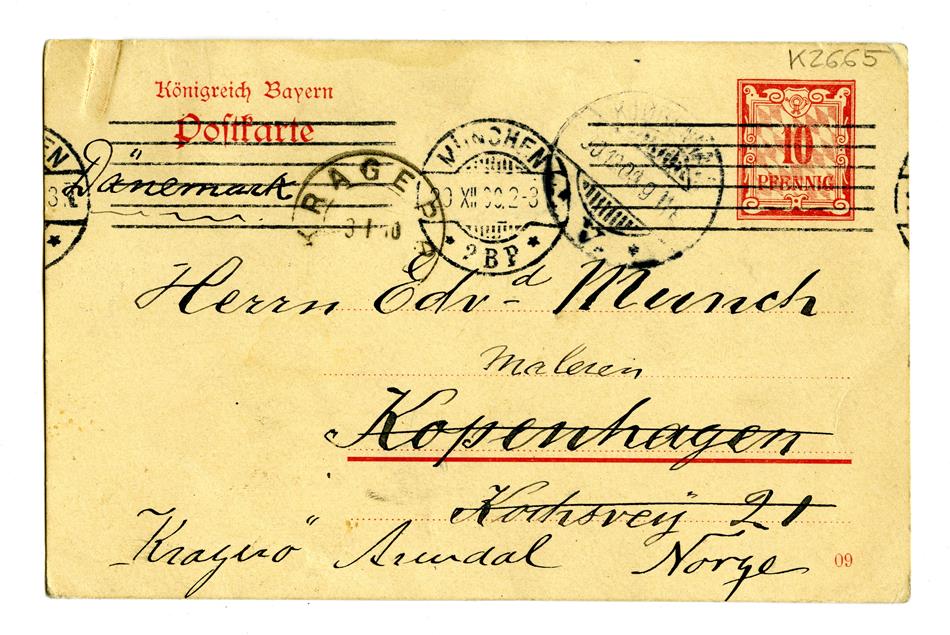 K2665
Königreich Bayern
Postkarte
10
PFENNIG
Dänemark
KRAGERØ
3 I 10
MÜNCHEN
XII 09.2-3
* 2 B.P. *
Herrn Edv-d Munch
Maleren
Kopenhagen
Kochsvej 21
Kragerö Arendal Norge
09